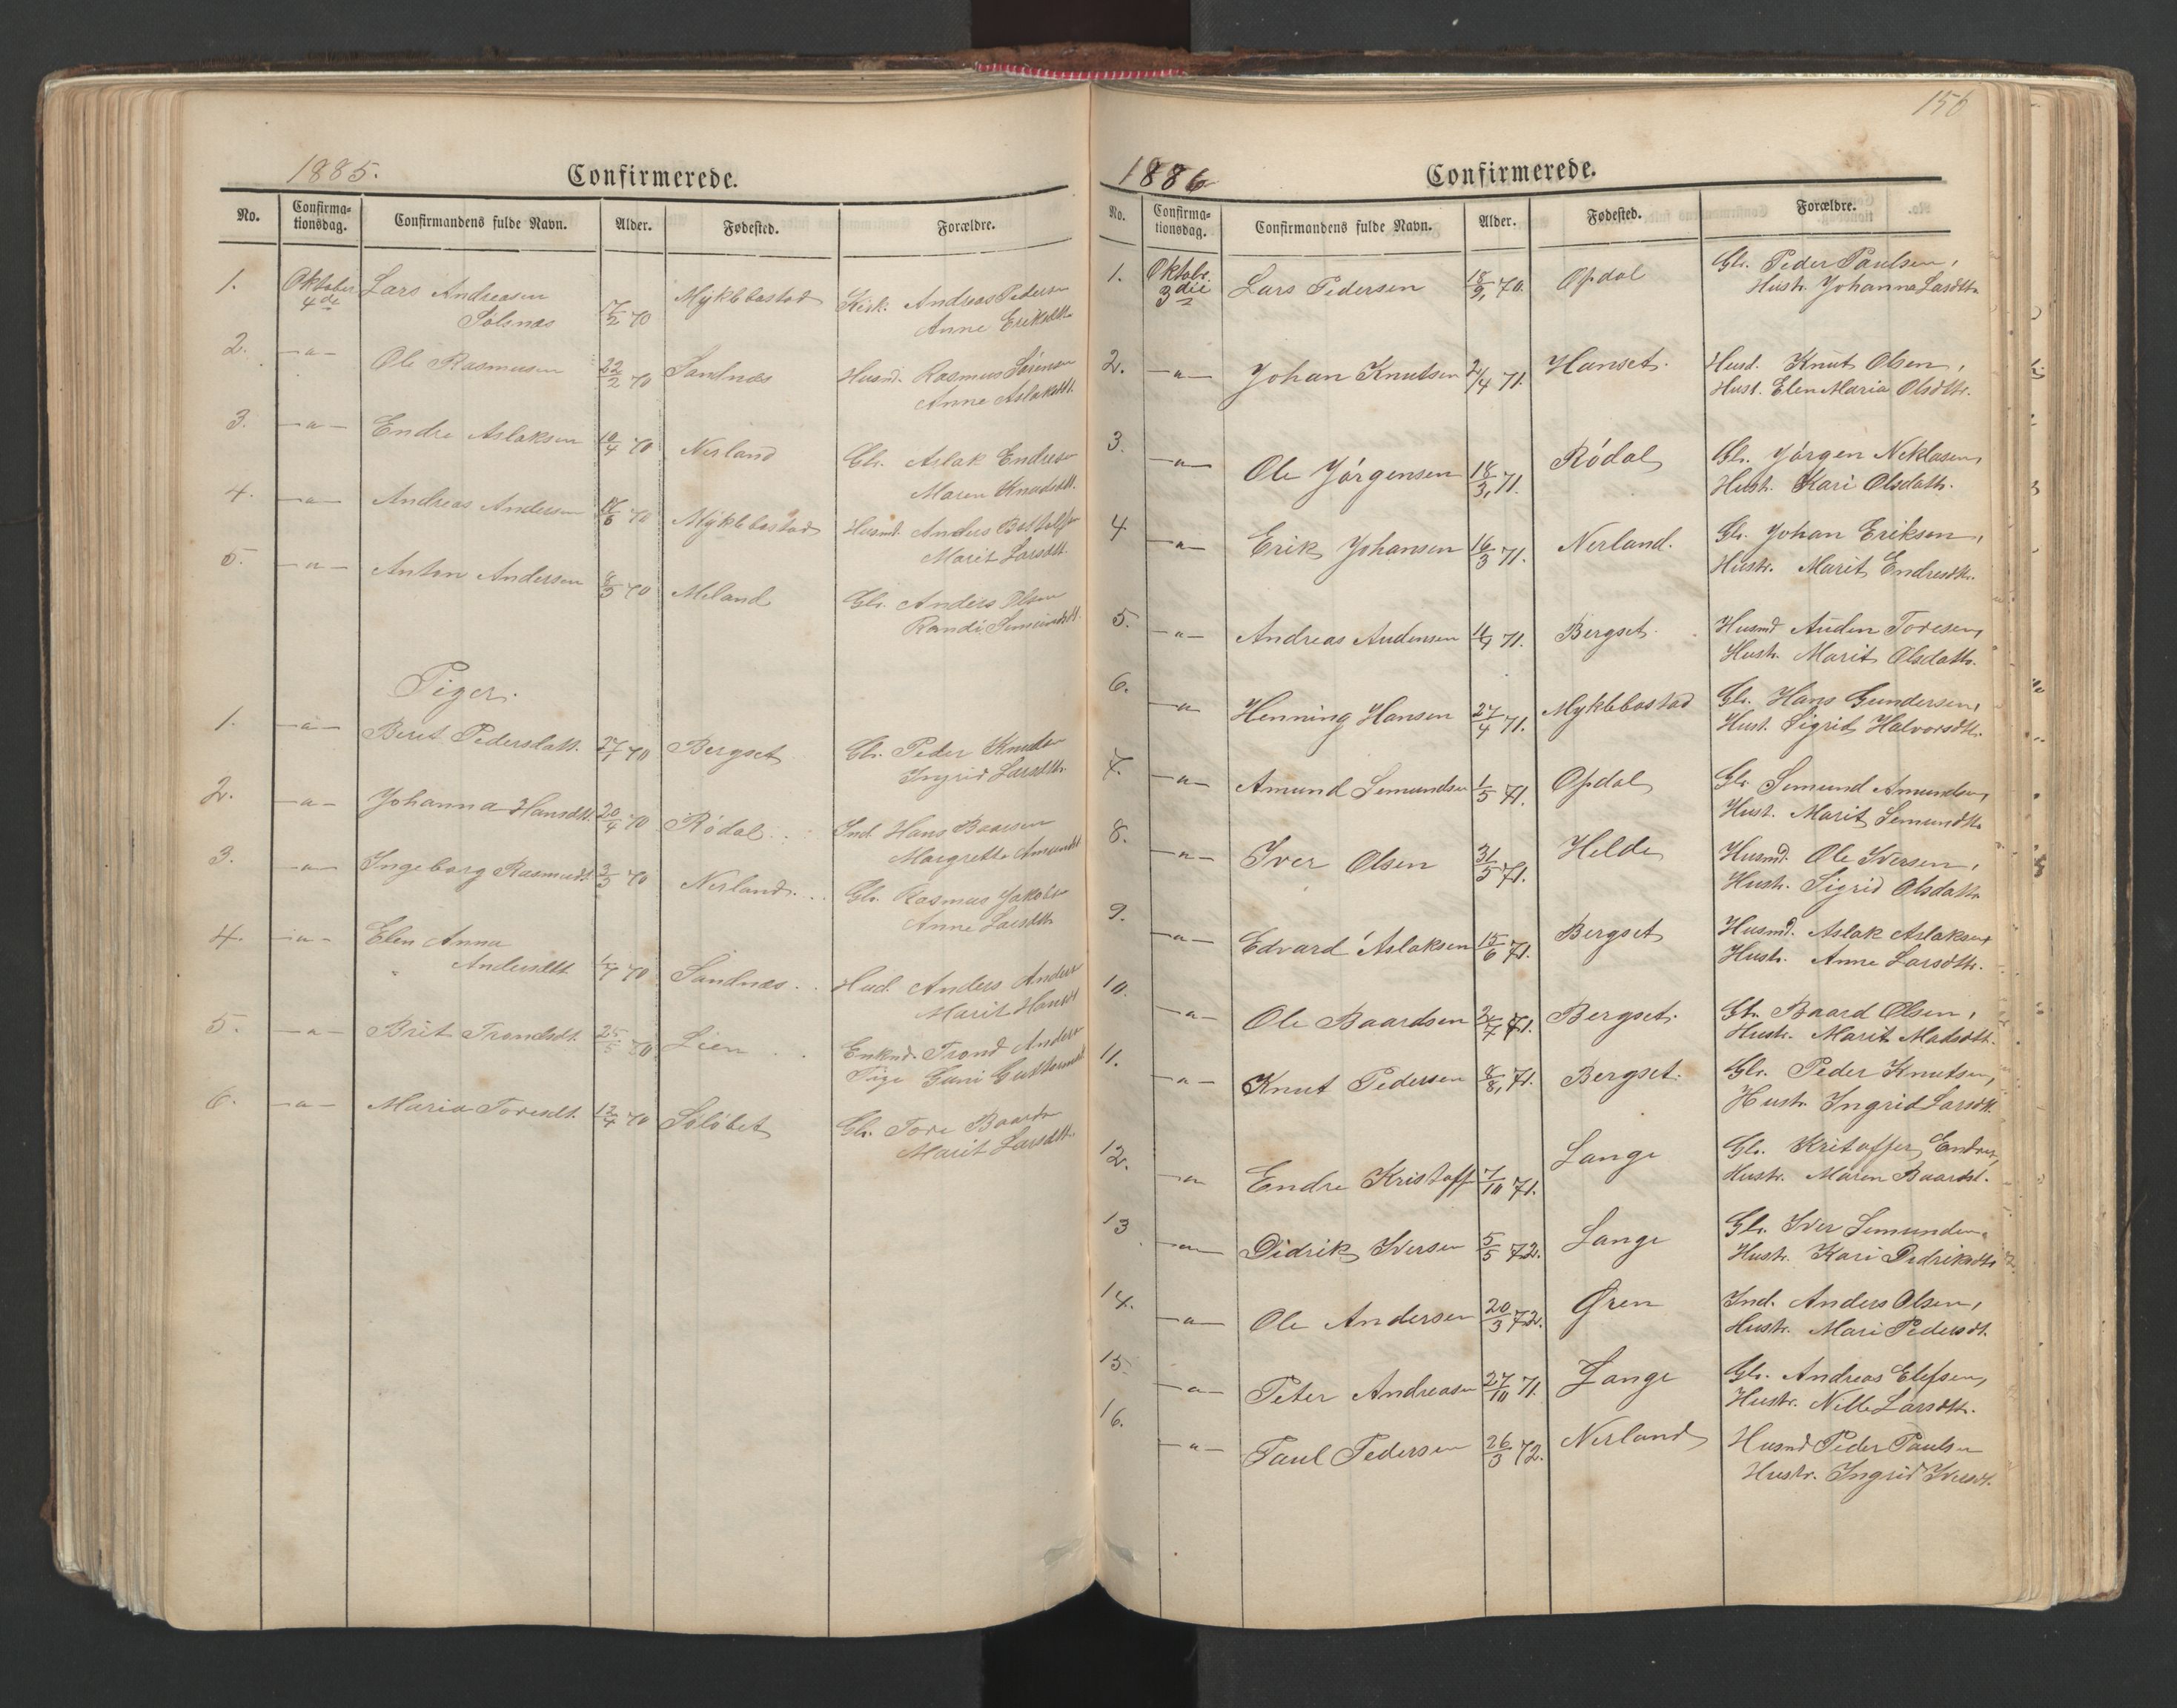 1885.
Confirmerede.
No. Confirma-tionsdag. Confirmandens fulde Navn. Alder. Fødested. Forældre.
1. Oktober 4de Lars Andreasen 7/2 70 Myklebostad Kirk: Andreas Pedersen
Solsnæs Anne Eriksdtr
2. —"— Ole Rasmusen 22/2 70 Sandnæs Husmd. Rasmus Sørensen
Anne Aslaksdtt.
3. —"— Endre Aslaksen 10/4 70 Nerland Gbr. Aslak Endresen
Maren Knudsdtt.
4. —"— Andreas Andersen 70 Myklebostad Husmd. Anders
Marit Larsdtt.
5. —"— Anton Andersen 70 Meland Gbr. Anders Olsen
Randi
Piger.
1. —"— Beret Pedersdatt. 27/7 70 Bergset Gbr. Peder Knudsen
Ingrid Larsdtt.
2. —"— Johanna Hansdtt. 20/4 70 Rödal Ind. Hans Baarsen
Margrethe Amundsdt
3. —"— Ingeborg Rasmusdt. 70 Nerland Gbr. Rasmus Jakobsen
Anne Larsdtt
4. —"— Elen Anna
Andersdtt 70 Sandnæs Husd. Anders Anderse
Marit Hansdt
5. —"— Brit Trondsdt. 25/5 70 Lien Enkmd. Trond Anderse
Pige Guri
6. —"— Maria Toresdt. 12/4 70 Gbr. Tore Baardse
Marit Larsdtt.
156
1886
Confirmerede.
No. Confirma-tionsdag. Confirmandens fulde Navn. Alder. Fødested. Forældre.
1. Oktobr. 3die Lars Pedersen 18/9, 70. Opdal Gbr. Peder Paulsen,
Hustr. Johanna Larsdtr
2. —"— Johan Knutsen 2/4 71. Hanset. Husd. Knut Olsen,
Hust. Elen Maria Olsdtr.
3. —"— Ole Jørgensen 18/3, 71. Rödal Gbr. Jørgen Neklasen,
Hustr. Kari Olsdattr.
4 —"— Erik Johansen 16/3 71. Nerland. Gbr. Johan Eriksen,
Hustr. Marit Endresdtr.
5. —"— Andreas Audensen 71. Bergset. Husmd Auden Toresen,
Hustr. Marit Olsdattr.
6. —"— Henning Hansen 27/4 71. Myklebostad Gbr. Hans Gundersen,
Hust. Sigrid Halvorsdtr.
7. —"— Amund Semundsen 1/5 71. Opdal Gbr Semund Amundsen,
Hust. Marit Semundsdtr
8. —"— Iver Olsen 31/5 71. Helde Husmd. Ole Iversen,
Hustr. Sigrid Olsdattr
9. —"— Edvard Aslaksen 15/6 71. Bergset Husmd. Aslak Aslaksen,
Hustr. Anne Larsdtr.
10. —"— Ole Baardsen 71. Bergset. Gbr. Baard Olsen,
Hustr. Marit Madsdtr.
11. —"— Knut Pedersen 8/8, 71. Bergset. Gbr. Peder Knutsen,
Hustr. Ingrid Larsdt.
12. —"— Endre Kristoff 7/10 71. Lange Gbr. Kritoffer Endres,
Hustr. Maren Baardsd.
13 —"— Didrik Iversen 5/5 72. Lange Gbr. Iver Semundsen,
Hustr. Kari Didriksdtr
14. —"— Ole Andersen 20/3 72. Øren Ind. Anders Olsen,
Hustr. Mari Pedersdt.
15. —"— Peter Andreasen 27/10 71. Lange Gbr. Andreas Elefsen,
Hustr. Nille Larsdtr.
16. —"— Paul Pedersen 26/3 72. Nerland Husmd Peder Paulsen
Hustr. Ingrid Iversdt.